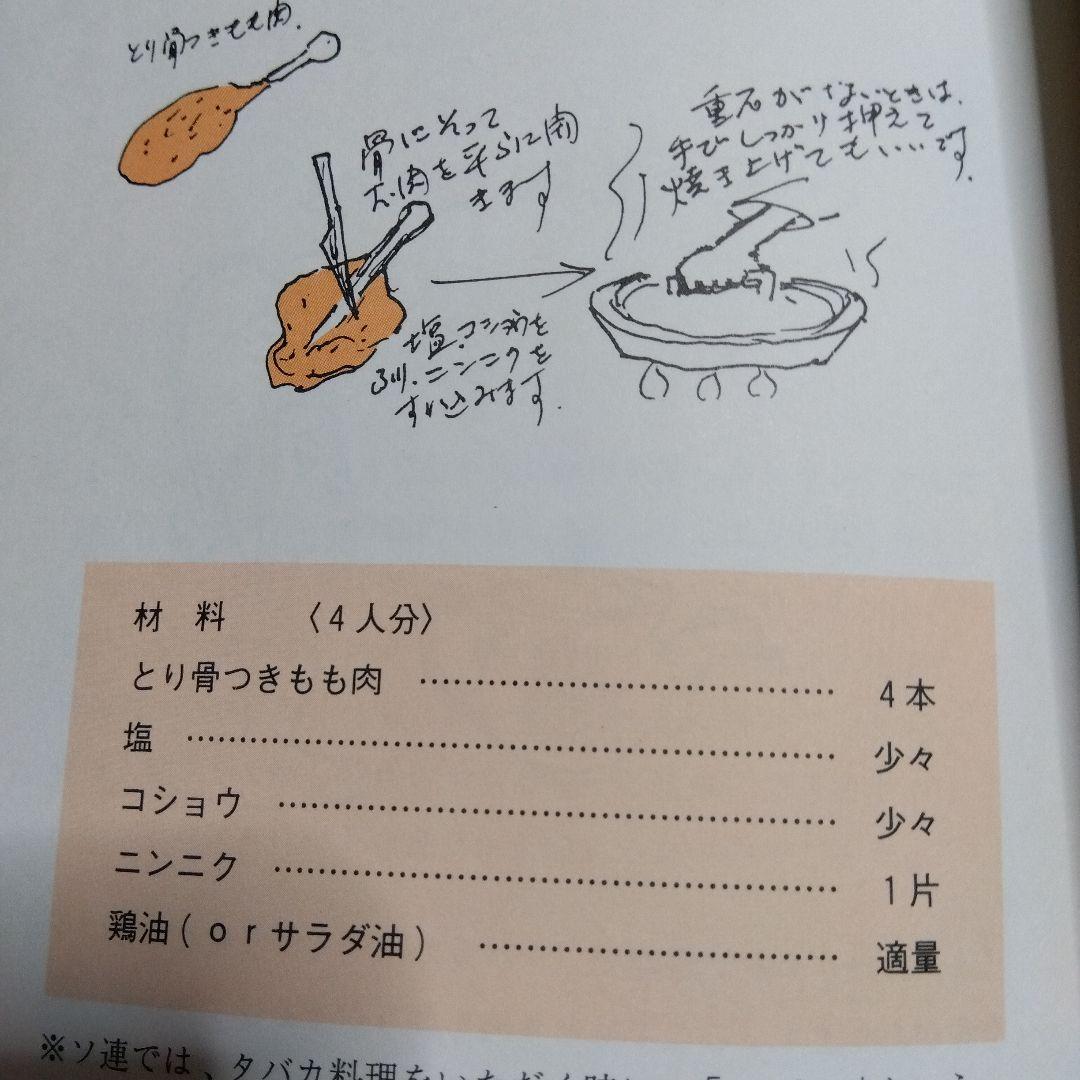 とり骨つきもも肉.
骨にそって
お肉を平らに開
きます
重石がないときは、
手でしっかり押えて
焼き上げてもいいです.
塩.コショウを
ふり.ニンニクを
すり込みます.
材 料 〈4人分〉
とり骨つきもも肉 …………………………………… 4本
塩 …………………………………… 少々
コショウ …………………………………… 少々
ニンニク …………………………………… 1片
鶏油(orサラダ油) …………………………………… 適量
※ソ連では、タバカ料理をいただく時に